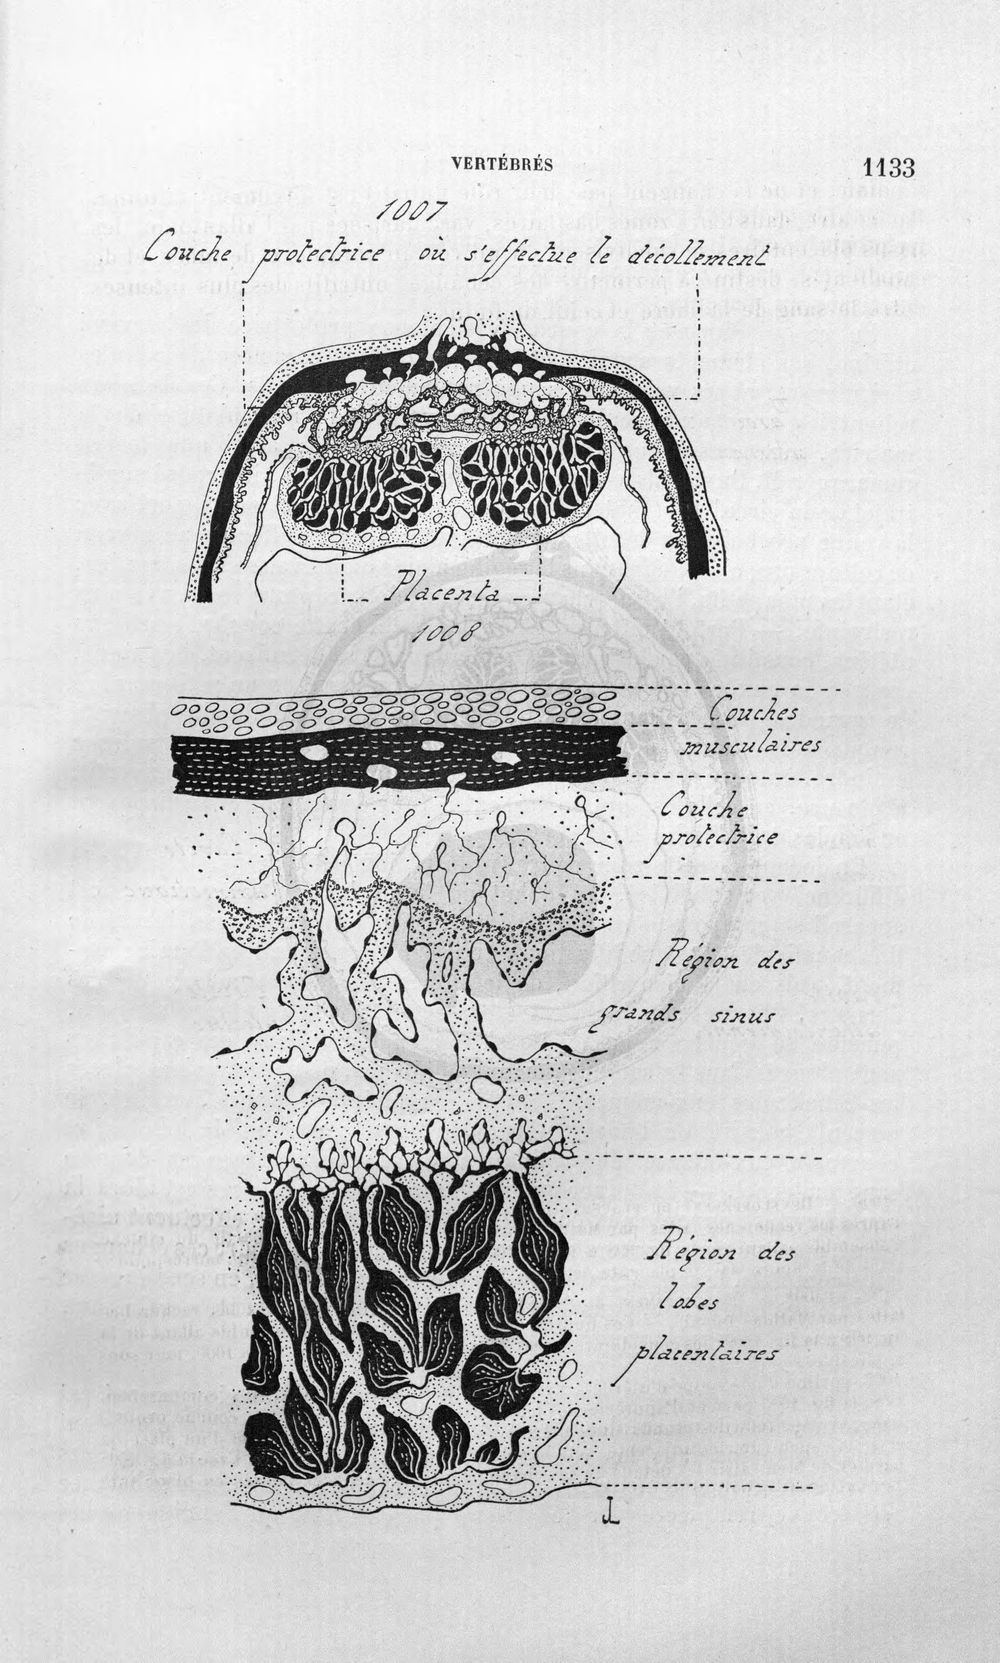 VERTÉBRÉS
1133
1007
Couche protectrice où s'effectue le décollement
Placenta
1008
Couches
musculaires
Couche
protectrice
Région des
grands sinus
Région des
lobes
placentaires